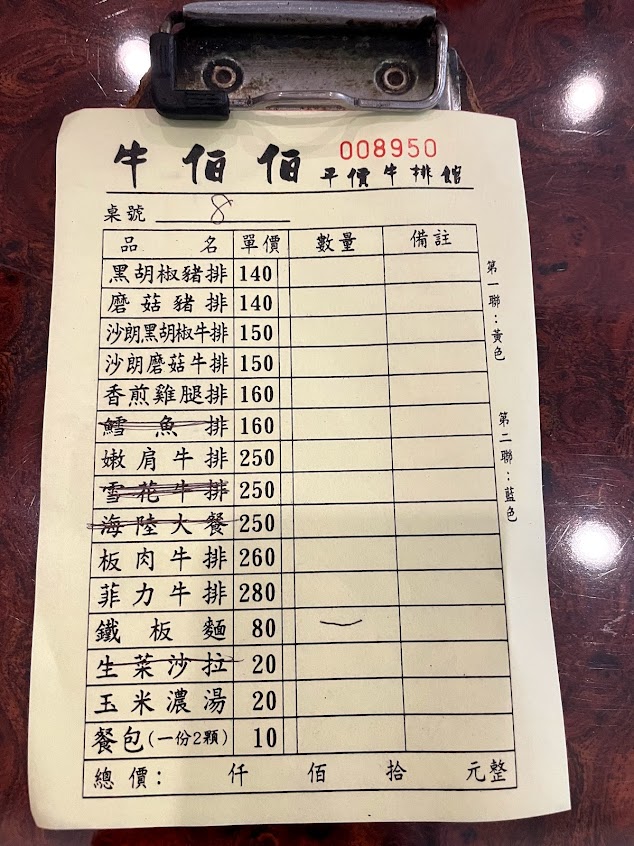 008950
牛佰佰 平價牛排館
桌號 8
品名 單價 數量 備註
黑胡椒豬排 140
磨菇豬排 140
沙朗黑胡椒牛排 150
沙朗磨菇牛排 150
香煎雞腿排 160
鱈魚排 160
嫩肩牛排 250
雪花牛排 250
海陸大餐 250
板肉牛排 260
菲力牛排 280
鐵板麵 80
生菜沙拉 20
玉米濃湯 20
餐包(一份2顆) 10
總價: 仟 佰 拾 元整
第一聯:黃色
第二聯:藍色